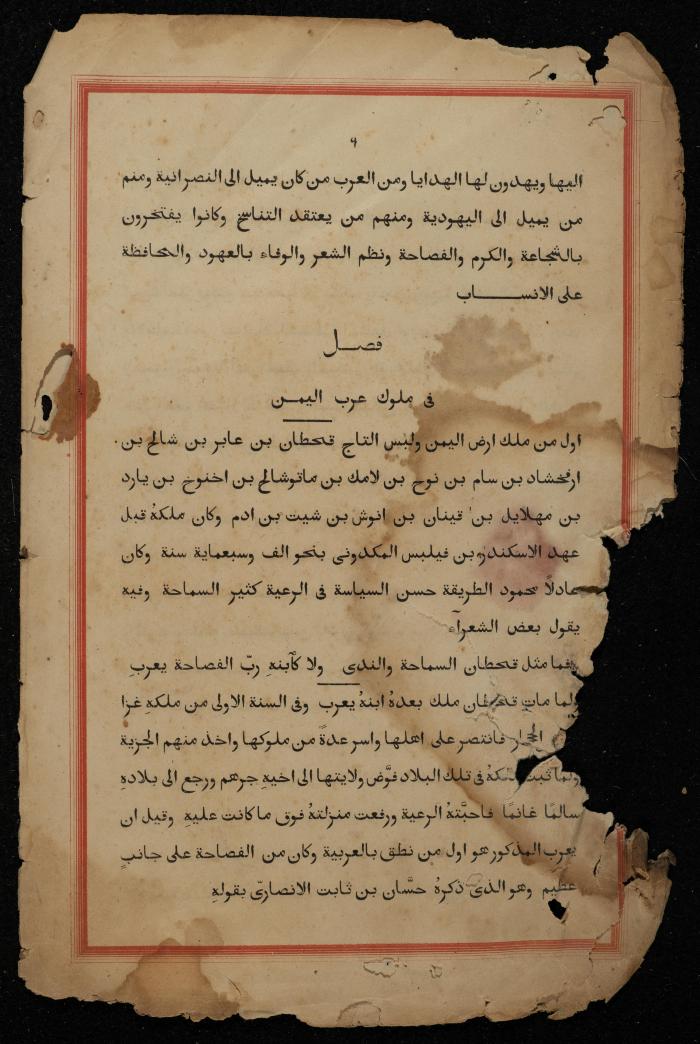 ٩
اليها ويهدون لها الهدايا ومن العرب من كان يميل الى النصرانية ومنم
من يميل الى اليهودية ومنهم من يعتقد التناسخ وكانوا يفتخرون
بالشجاعة والكرم والفصاحة ونظم الشعر والوفاء بالعهود والمحافظة
على الانســـاب
فصـل
فى ملوك عرب اليمـن
اول من ملك ارض اليمن ولبس التاج قحطان بن عابر بن شالح بن
ارفخشاد بن سام بن نوح بن لامك بن ماتوشالح بن اخنوخ بن يارد
بن مهلايل بن قينان بن انوش بن شيت بن ادم وكان ملكهُ قبل
عهد الاسكندر بن فيلبس المكدونى بنحو الف وسبعماية سنة وكان
عادلًا محمود الطريقة حسن السياسة فى الرعية كثير السماحة وفيه
يقول بعض الشعرآء
فما مثل قحطان السماحة والندى ولا كآبنهِ ربّ الفصاحة يعربِ
ولما مات قحطان ملك بعدهُ ابنهُ يعرب وفى السنة الاولى من ملكهِ غزا
فانتصر على اهلها واسر عدةً من ملوكها واخذ منهم الجزية
ولما ثبت ملكهُ فى تلك البلاد فوَّض ولايتها الى اخيهِ جرهم ورجع الى بلادهِ
سالمًا غانمًا فاحبَّتهُ الرعية ورفعت منزلتهُ فوق ما كانت عليهِ وقيل ان
يعرب المذكور هو اول من نطق بالعربية وكان من الفصاحة على جانبٍ
عظيم وهو الذى ذكرهُ حسَّان بن ثابت الانصارىّ بقولهِ